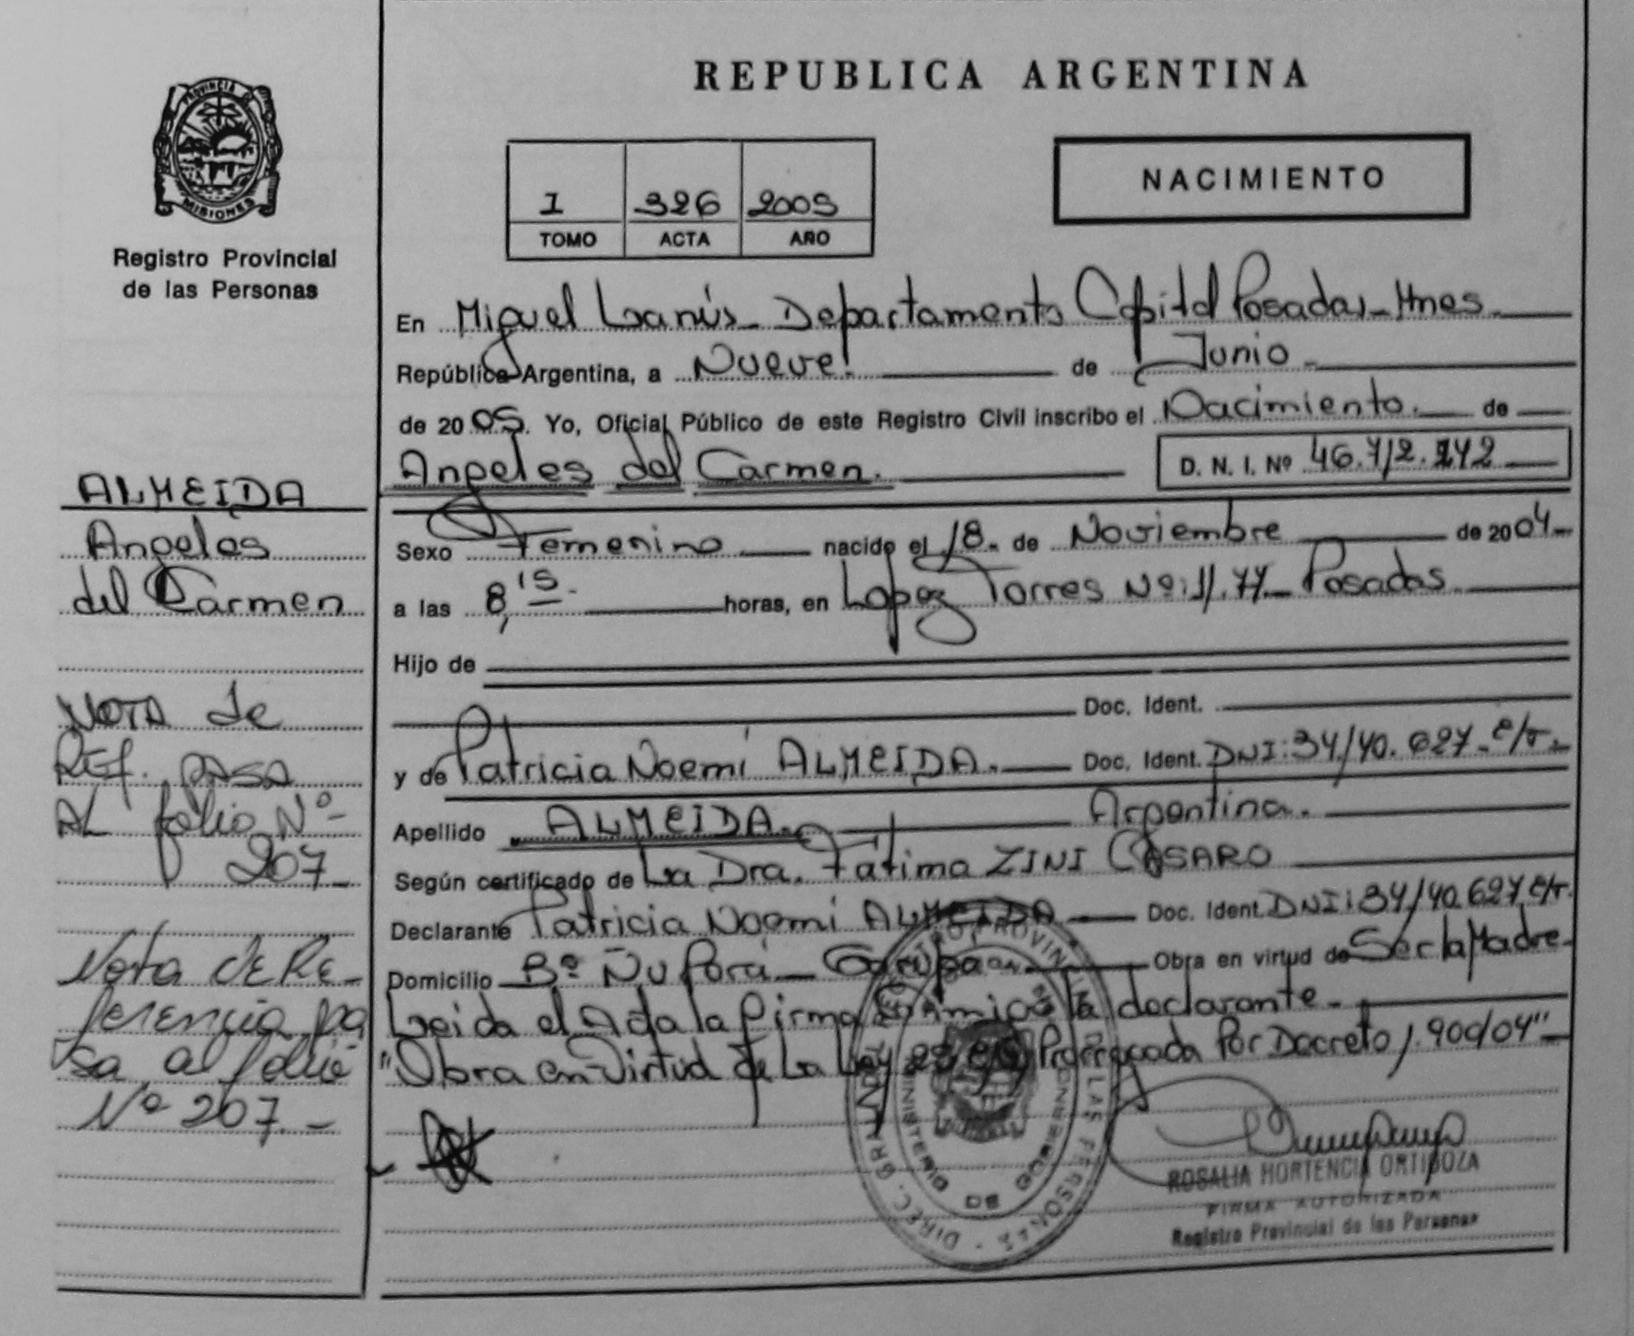 REPUBLICA ARGENTINA
PROVINCIA DE
MISIONES
Registro Provincial
de las Personas
NACIMIENTO
I 326 2005
TOMO ACTA AÑO
En Miguel Lanús - Departamento Capital Posadas - Mnes.
República Argentina, a Nueve de Junio
de 2005. Yo, Oficial Público de este Registro Civil inscribo el Nacimiento. de
Angeles del Carmen. D. N. I. Nº
Sexo Femenino nacido el 18. de Noviembre de 2004
a las 8,15 horas, en Lopez Torres Nº Posadas
Hijo de
Doc. Ident.
y de Patricia Noemí ALMEIDA. Doc. Ident. DNI:
Apellido ALMEIDA. Argentina.
Según certificado de La Dra. Fátima ZINI CASARO
Declarante Patricia Noemí ALMEIDA Doc. Ident. DNI:
Domicilio Bº Ñu Porá - Garupá Obra en virtud de Ser la Madre
Leida el Acta la firma la declarante.
"Obra en Virtud de La Ley Prorrogada Por Decreto 1.900/04"
ROSALIA HORTENCIA ORTIGOZA
FIRMA AUTORIZADA
Registro Provincial de las Personas
ALMEIDA
Angeles
del Carmen
NOTA de
REf. PASA
AL folio Nº
207
Nota de Re-
ferencia pa
sa al folio
Nº 207.-